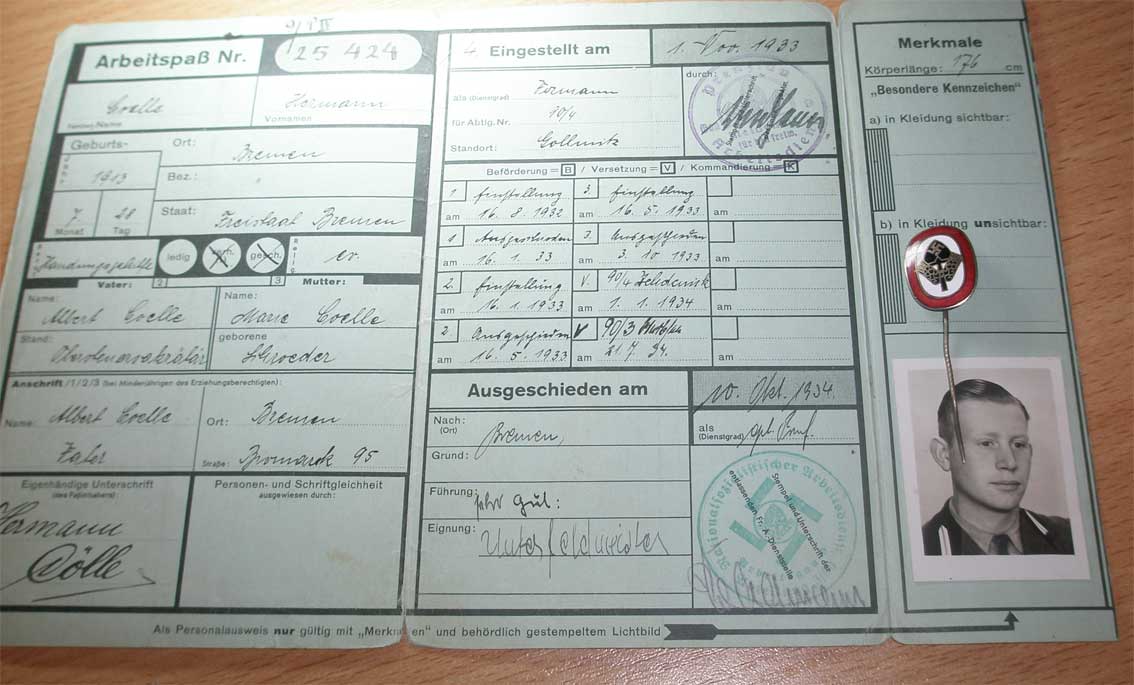 Arbeitspaß Nr. 25 424
Coelle Hermann
Vornamen
Geburts-
1913
7. 28
Monat Tag
Ort: Bremen
Bez.:
Staat: Freistaat Bremen
Handlungsgehilfe
ledig verh. gesch.
Relig. ev.
Vater: 2 3 Mutter:
Name: Albert Coelle
Name: Marie Coelle
Stand:
geborene Schroeder
Anschrift /1/2/3 (bei Minderjährigen des Erziehungsberechtigten):
Albert Coelle
Vater
Ort: Bremen
Straße: 95
Eigenhändige Unterschrift
(des Paßinhabers)
Hermann
Cölle
Personen- und Schriftgleichheit
ausgewiesen durch:
4 Eingestellt am 1. Nov. 1933
als (Dienstgrad)
für Abtlg. Nr. 90/4
Standort: Gollmitz
durch:
Beförderung = B / Versetzung = V / Kommandierung = K
1 Einstellung 3. Einstellung
am 16. 8. 1932 am 16. 5. 1933 am
1 Ausgeschieden 3. Ausgeschieden
am 16. 1. 33 am 3. 10 1933 am
2. Einstellung V. 90/4 Zehdenick
am 16. 1. 1933 am 1. 1. 1934 am
2 Ausgeschieden V 90/3
am 16. 5. 1933 am 21. 7. 34. am
Ausgeschieden am 10. Okt. 1934
Nach: Bremen,
(Ort)
als
(Dienstgrad)
Grund:
Führung: sehr Gut:
Eignung: Unterfeldmeister
Nationalsozialistischer Arbeitsdienst
Stempel und Unterschrift der
entlassenden Fr. A. Dienststelle
Merkmale
Körperlänge: 176 cm
„Besondere Kennzeichen"
a) in Kleidung sichtbar:
b) in Kleidung unsichtbar:
Als Personalausweis nur gültig mit „Merkmalen" und behördlich gestempeltem Lichtbild